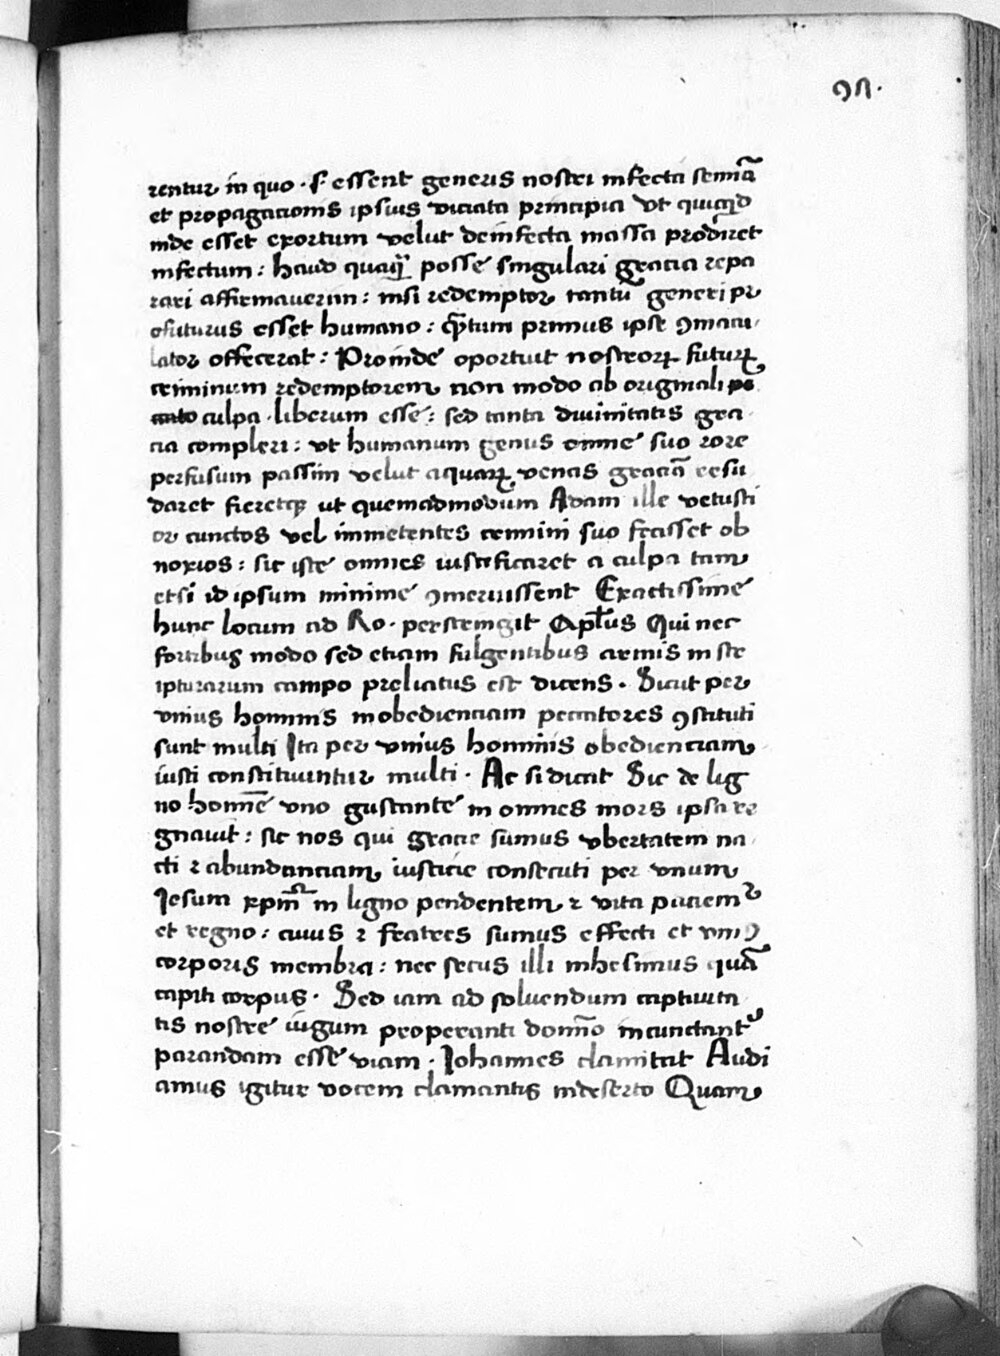 rentur in quo · s· essent generis nostri infecta seminā
et propagacionis ipsius viciata principia vt quicqͥd
inde esset exortum velut deinfecta massa prodiret
infectum : haud quaqͣ posse singulari gracia repa
rari affirmaverim : nisi redemptor tantū generi pr
ofuturus esset humano : qͣtum primus ipse ꝯmacu-
lator offecerat : Proinde oportuit nostroꝝ futuꝝ
criminum redemptorem non modo ab originali pe
ccato culpa · liberum esse : sed tanta diuinitatis gra-
cia compleri : vt humanum genus omne suo rore
perfusum passim velut aquaꝝ venas graciā resu
daret fieretqꝫ ut quemadmodum Adam ille vetusti
or cunctos vel immerentes crimini suo fecisset ob
noxios : sic iste omnes iustificaret a culpa tam
etsi id ipsum minime ꝯmeruissent Exactissime
hunc locum ad Ro · perstringit Apłus Qui nec
fortibus modo sed etiam fulgentibus armis in scr
ipturarum campo preliatus est dicens · Sicut per
vnius hominis inobedienciam peccatores ꝯstituti
sunt multi Ita per vnius hominis obedienciam
iusti constituuntur multi · Ac si dicat Sic de lig
no homīe vno gustante in omnes mors ipsa re
gnauit : sic nos qui gracie sumus vbertatem na-
cti ⁊ abundanciam iusticie consecuti per vnum
Iesum xpm̄ in ligno pendentem ⁊ vita paciemʳ
et regno : cuius ⁊ fratres sumus effecti et vniꝰ
corporis membra : nec secus illi inhesimus quā
capiti corpus · Sed iam ad soluendum captiuita-
tis nostre iugum properanti domīno incunctantʳ
parandam esse viam · Iohannes clamitat Audi
amus igitur vocem clamantis indeserto Quam